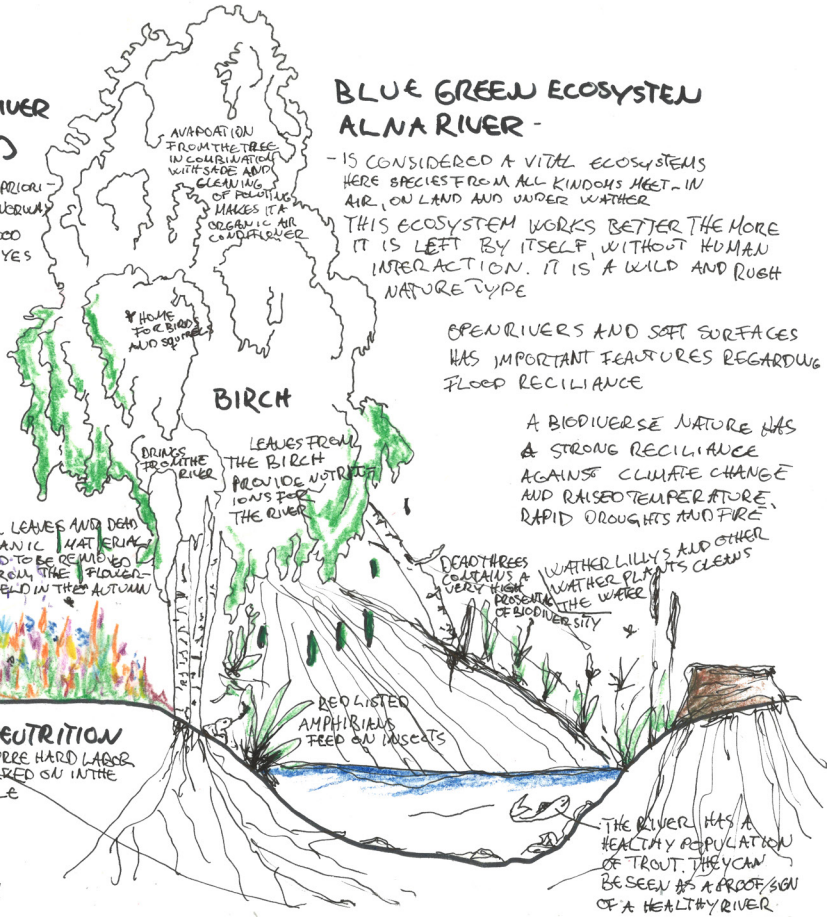 BLUE GREEN ECOSYSTEN
ALNARIVER -
- IS CONSIDERED A VITAL ECOSYSTEMS
HERE SPECIES FROM ALL KINDOMS MEET - IN
AIR, ON LAND AND UNDER WATHER
THIS ECOSYSTEM WORKS BETTER THE MORE
IT IS LEFT BY ITSELF, WITHOUT HUMAN
INTERACTION. IT IS A WILD AND RUGH
NATURE TYPE
OPEN RIVERS AND SOFT SURFACES
HAS IMPORTANT FEAUTURES REGARDING
FLOOD RECILIANCE
A BIODIVERSE NATURE HAS
A STRONG RECILIANCE
AGAINST CLIMATE CHANGE
AND RAISED TEMPERATURE,
RAPID DROUGHTS AND FIRE
IVER
PRIORI-
NORWAY
OOD
YES
AVAPOATION
FROM THE TREE
IN COMBINATION
WITH SADE AND
CLEANING
OF POLUTING
MAKES IT A
ORGANIC AIR
CONDITIONER
HOME
FOR BIRDS
AND SQUIRRELS
BIRCH
DRINGS
FROM THE
RIVER
LEAVES FROM
THE BIRCH
PROVIDE NUTRIT
IONS FOR
THE RIVER
L LEAVES AND DEAD
ANIC MATERIAL
D TO BE REMOVED
ROM THE FLOWER-
ELD IN THE AUTUMN
DEAD THREES
CONTAINS A
VERY HIGH
PRESENTAG
OF BIODIVERSITY
WATHER LILLYS AND OTHER
WATHER PLANTS CLEANS
THE WATER
RED LISTED
AMPHIBIANS
FEED ON INSECTS
EUTRITION
RRE HARD LABOR
RED ON IN THE
LE
THE RIVER HAS A
HEALTHY POPULATION
OF TROUT. THEY CAN
BE SEEN AS A PROOF/SIGN
OF A HEALTHY RIVER